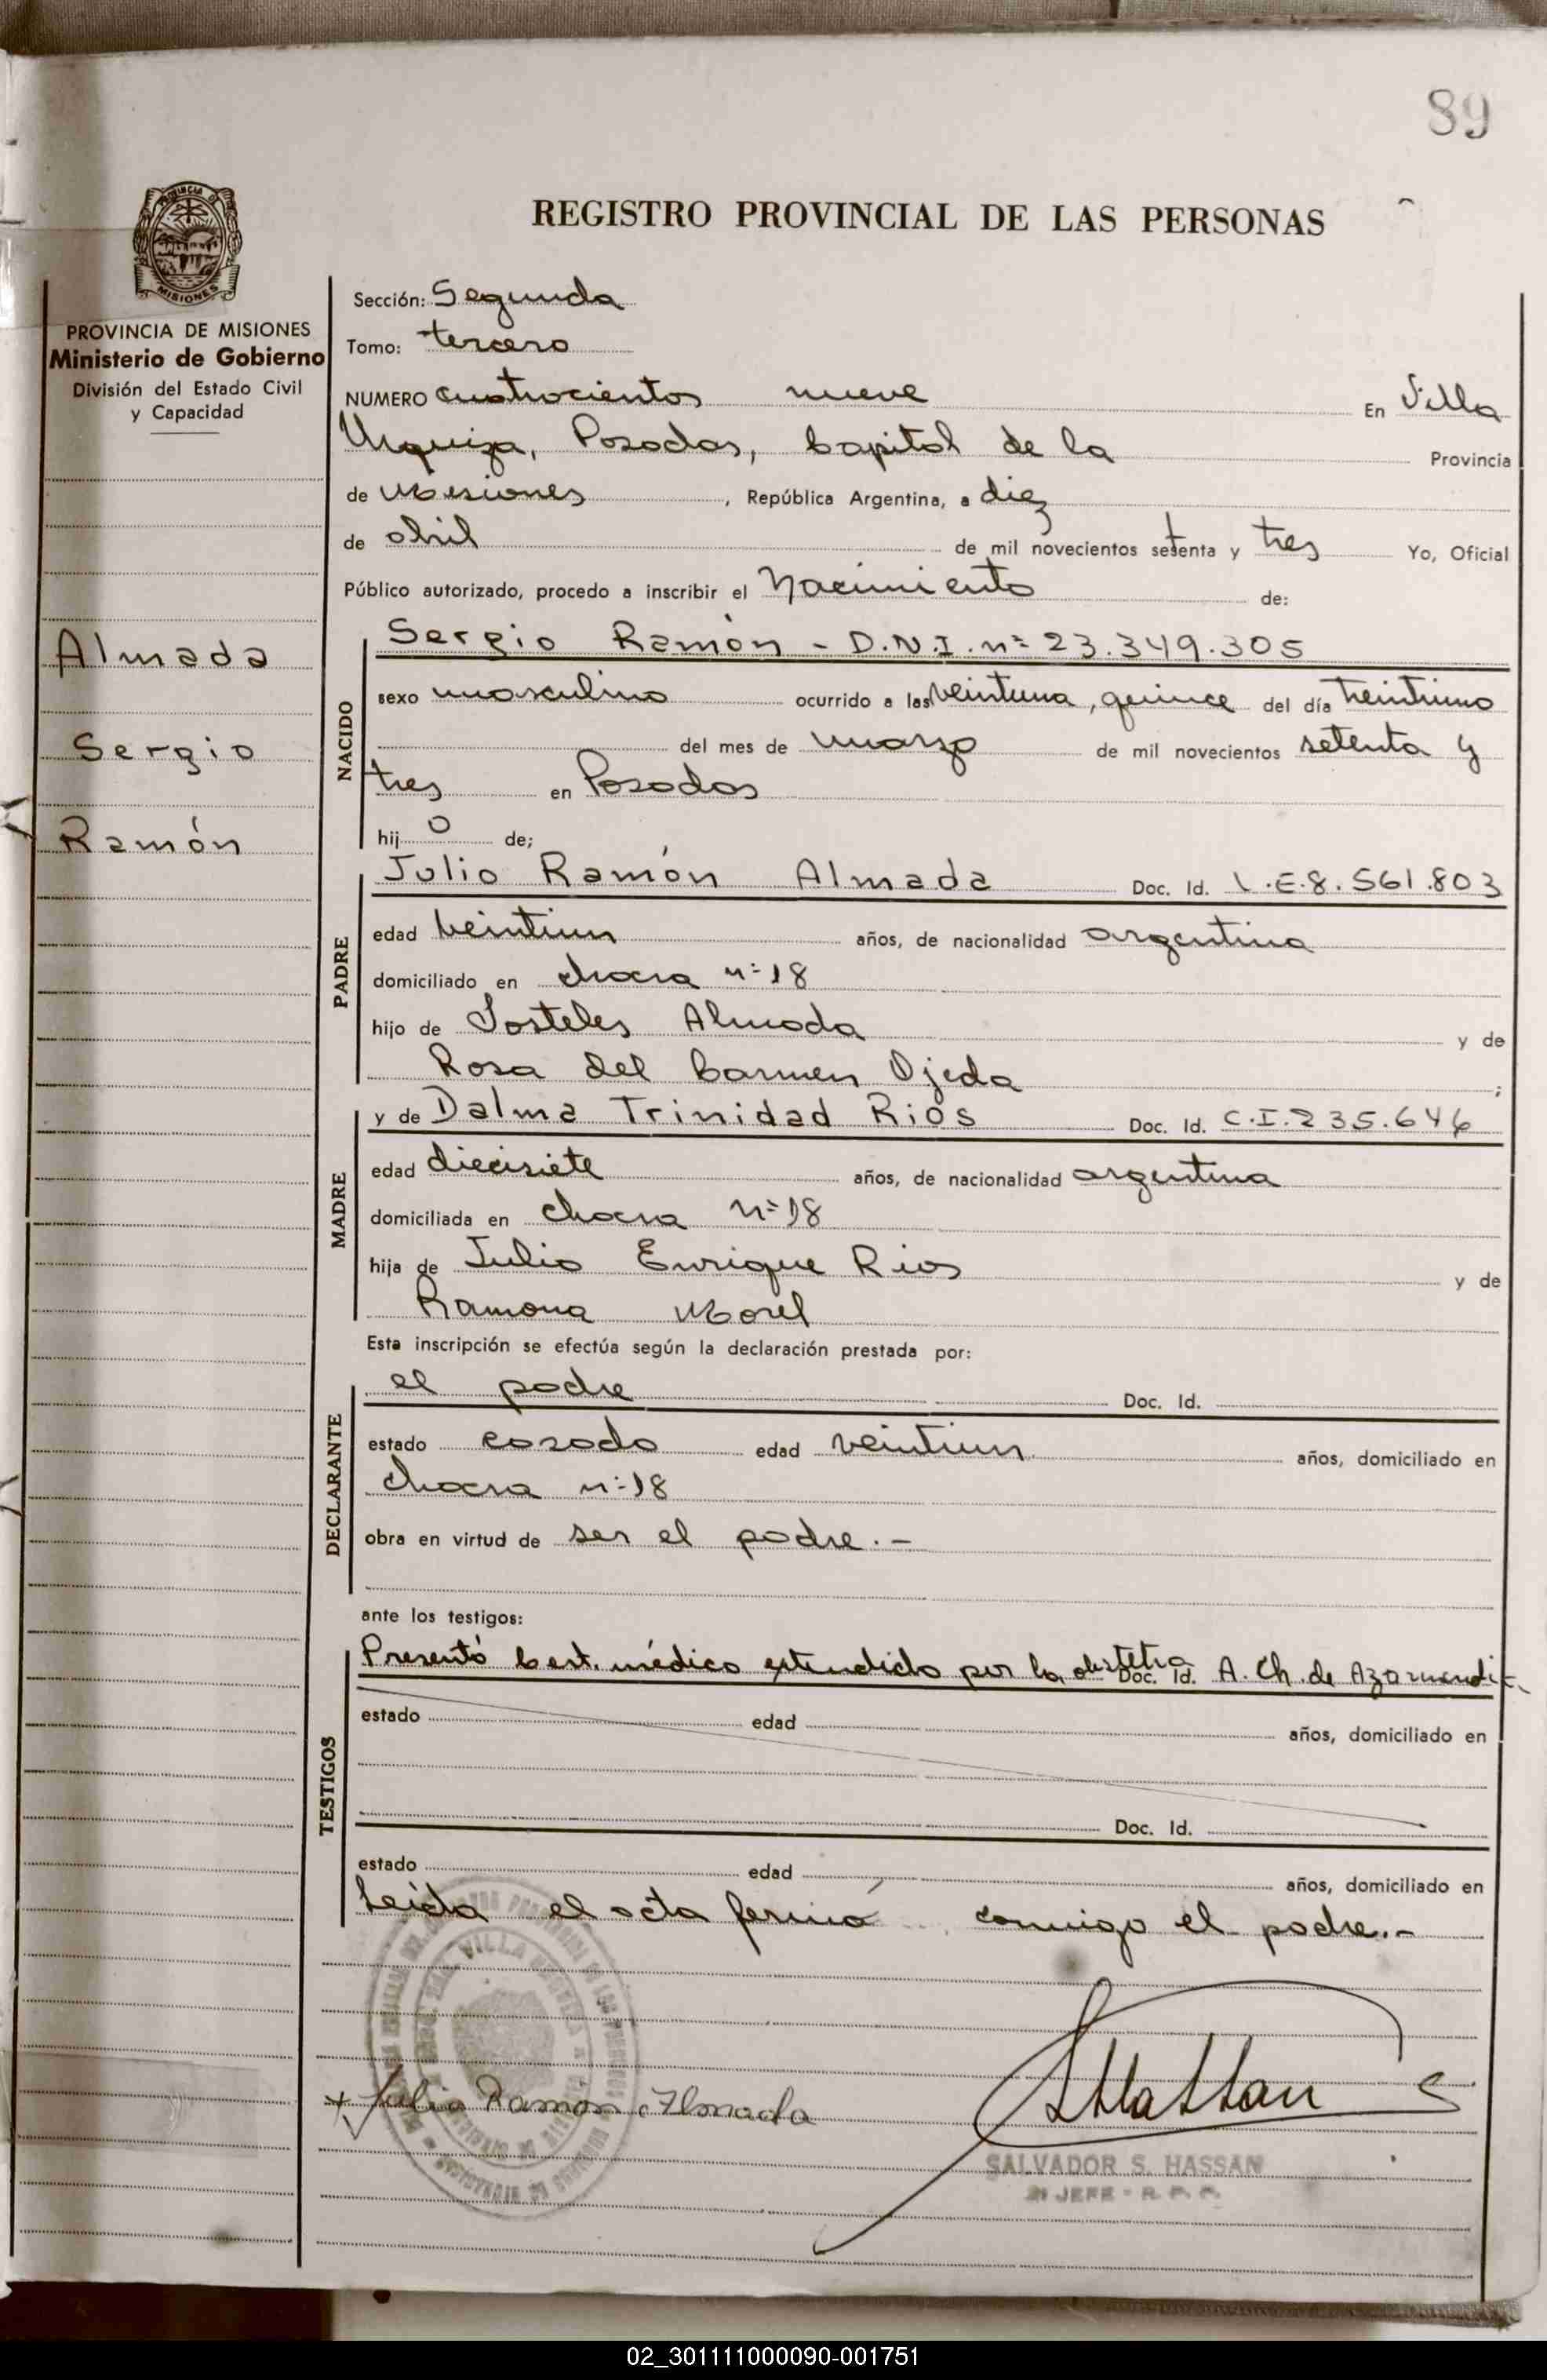 89
REGISTRO PROVINCIAL DE LAS PERSONAS
PROVINCIA DE MISIONES
Ministerio de Gobierno
División del Estado Civil
y Capacidad
Almada
Sergio
Ramón
Sección: Segunda
Tomo: tercero
NUMERO cuatrocientos nueve En Villa
Urquiza, Posadas, Capital de la Provincia
de Misiones, República Argentina, a diez
de abril de mil novecientos setenta y tres Yo, Oficial
Público autorizado, procedo a inscribir el Nacimiento de:
NACIDO
Sergio Ramón - D.N.I. nº 23.349.305
sexo masculino ocurrido a las veintiuna, quince del día treintiuno
del mes de marzo de mil novecientos setenta y
tres en Posadas
hij o de;
PADRE
Julio Ramón Almada Doc. Id. L.E. 8.561.803
edad veintiun años, de nacionalidad argentina
domiciliado en chacra nº 18
hijo de Sosteles Almada y de
Rosa del Carmen Ojeda ;
MADRE
y de Dalma Trinidad Rios Doc. Id. C.I. 235.646
edad diecisiete años, de nacionalidad argentina
domiciliada en chacra nº 18
hija de Julio Enrique Rios y de
Ramona Morel
Esta inscripción se efectúa según la declaración prestada por:
DECLARANTE
el padre Doc. Id.
estado casado edad veintiun años, domiciliado en
chacra nº 18
obra en virtud de ser el padre.-
ante los testigos:
TESTIGOS
Presentó Cert. médico extendido por la obstetra Doc. Id. A. Ch. de Azarmendi-
estado edad años, domiciliado en
Doc. Id.
estado edad años, domiciliado en
Leida el acta firmó conmigo el padre.-
VILLA URQUIZA
Julio Ramon Almada
SHassan
SALVADOR S. HASSAN
JEFE - R. P. P.
02_301111000090-001751